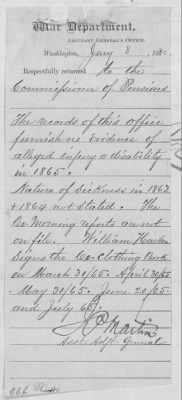 War Department,
ADJUTANT GENERAL'S OFFICE,
Washington, Jany 8, 188
Respectfully returned to the
Commissioner of Pensions
The records of this office
furnish no evidence of
alleged injury or disability
in 1865.
Nature of sickness in 1863
& 1864 not stated. The
Co. Morning reports are not
on file. William
signs the Co. Clothing Book
on March 31/65 April 30/65
May 31/65 June 20/65
and July 65.
Martin
Asst. Adjt. General